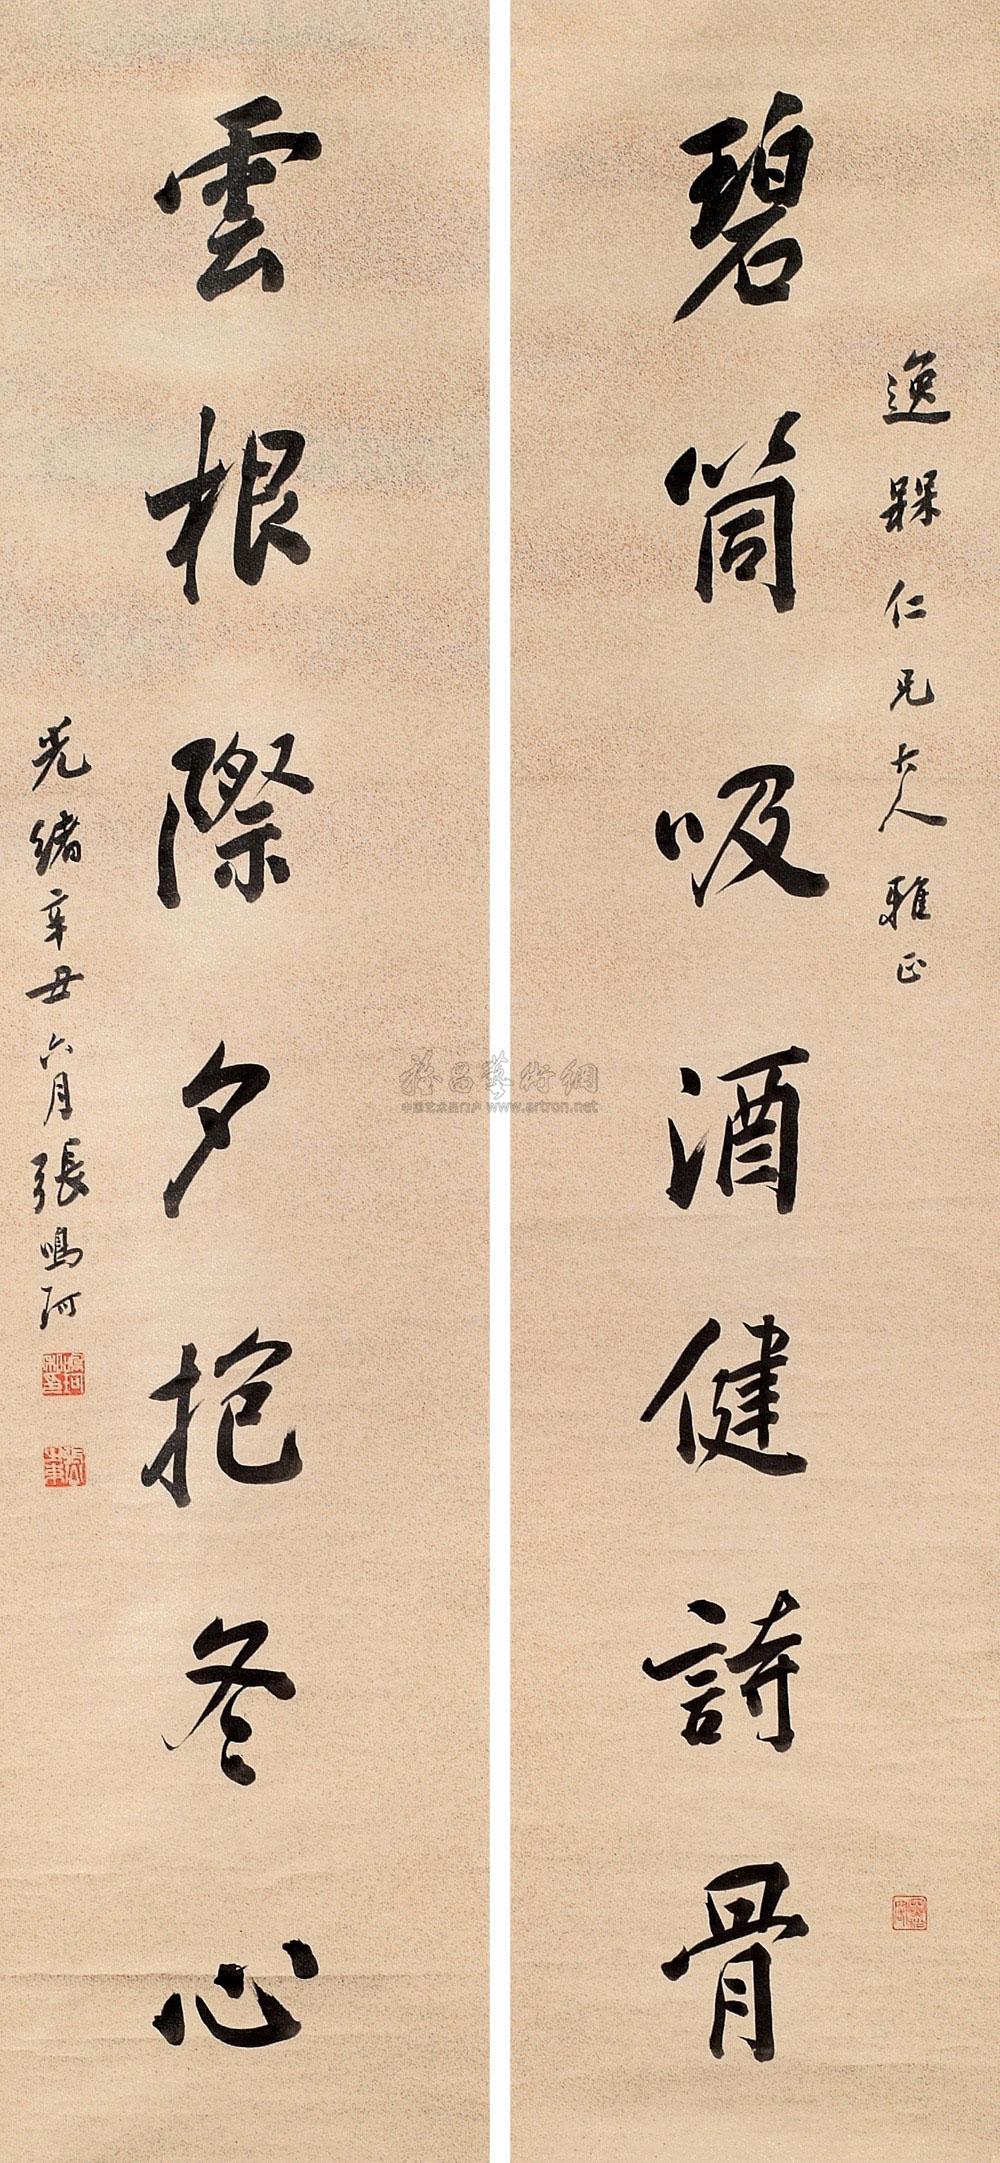 逸槑仁兄大人雅正
碧筒吸酒健詩骨
雲根際夕抱冬心
光緒辛丑六月張鳴珂
雅昌藝術網
中国艺术品门户 www.artron.net